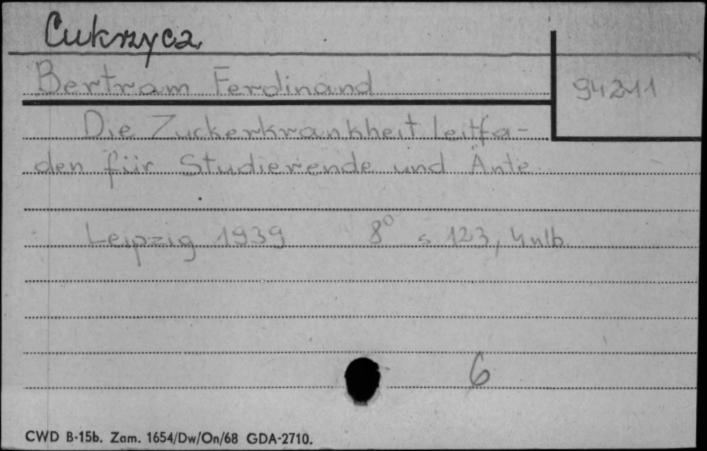 Cukrzyca
Bertram Ferdinand
94211
Die Zuckerkrankheit Leitfa-
den für Studierende und Änte
Leipzig 1939 8° s 123, 4 nlb.
6
CWD B-15b. Zam. 1654/Dw/On/68 GDA-2710.